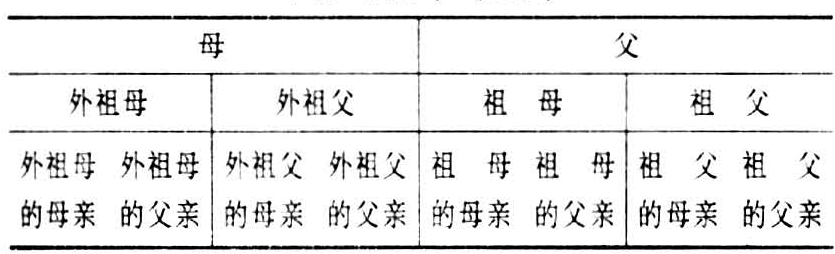 母 父
外祖母 外祖父 祖母 祖父
外祖母 外祖母 外祖父 外祖父 祖母 祖母 祖父 祖父
的母亲 的父亲 的母亲 的父亲 的母亲 的父亲 的母亲 的父亲